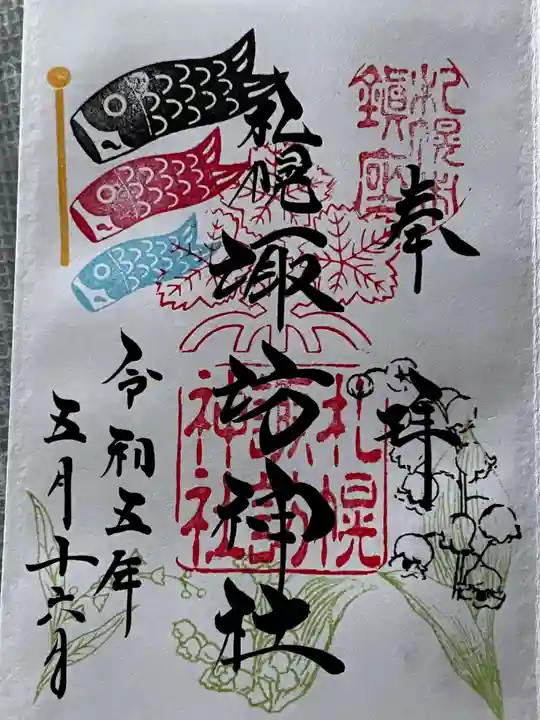 奉拝
札幌市
鎮座
札幌諏訪神社
札幌
諏訪
神社
令和五年
五月十六日